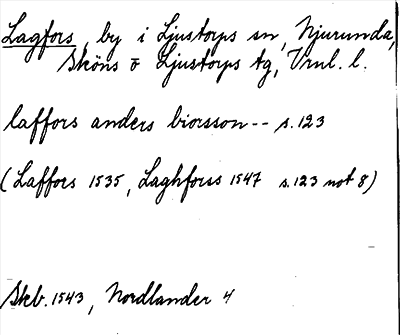 Lagfors, by i Ljustorps sn, Njurunda,
Sköns o Ljustorps tg, Vrnl. l.
laffors anders biorsson-- s.123
(Laffors 1535, Laghforss 1547 s.123 not 8)
Skb. 1543, Nordlander 4